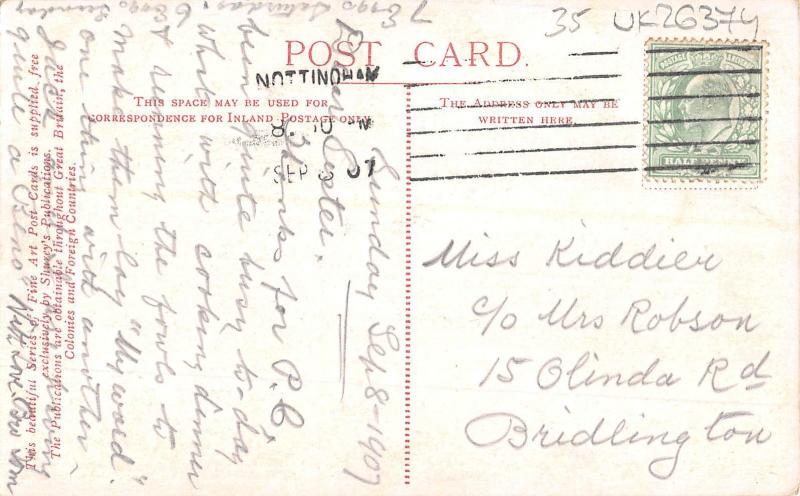 35 UK26374
POST CARD.
THIS SPACE MAY BE USED FOR
CORRESPONDENCE FOR INLAND POSTAGE ONLY.
THE ADDRESS ONLY MAY BE
WRITTEN HERE.
NOTTINGHAM
SEP 8 07
POSTAGE
HALFPENNY
Miss Kiddier
c/o Mrs Robson
15 Olinda Rd
Bridlington
Sunday Sep 8-1907
Dear Sister.
Thanks for P.C
been quite busy to-day
what with cooking dinner
& running the fowls to
make them lay "My word"
on this with another
quite a
7 Eggs Saturday. 6 Eggs Sunday
This beautiful Series of Fine Art Post Cards is supplied free
exclusively by Shurey's Publications.
The Publications are obtainable throughout Great Britain, the
Colonies and Foreign Countries.